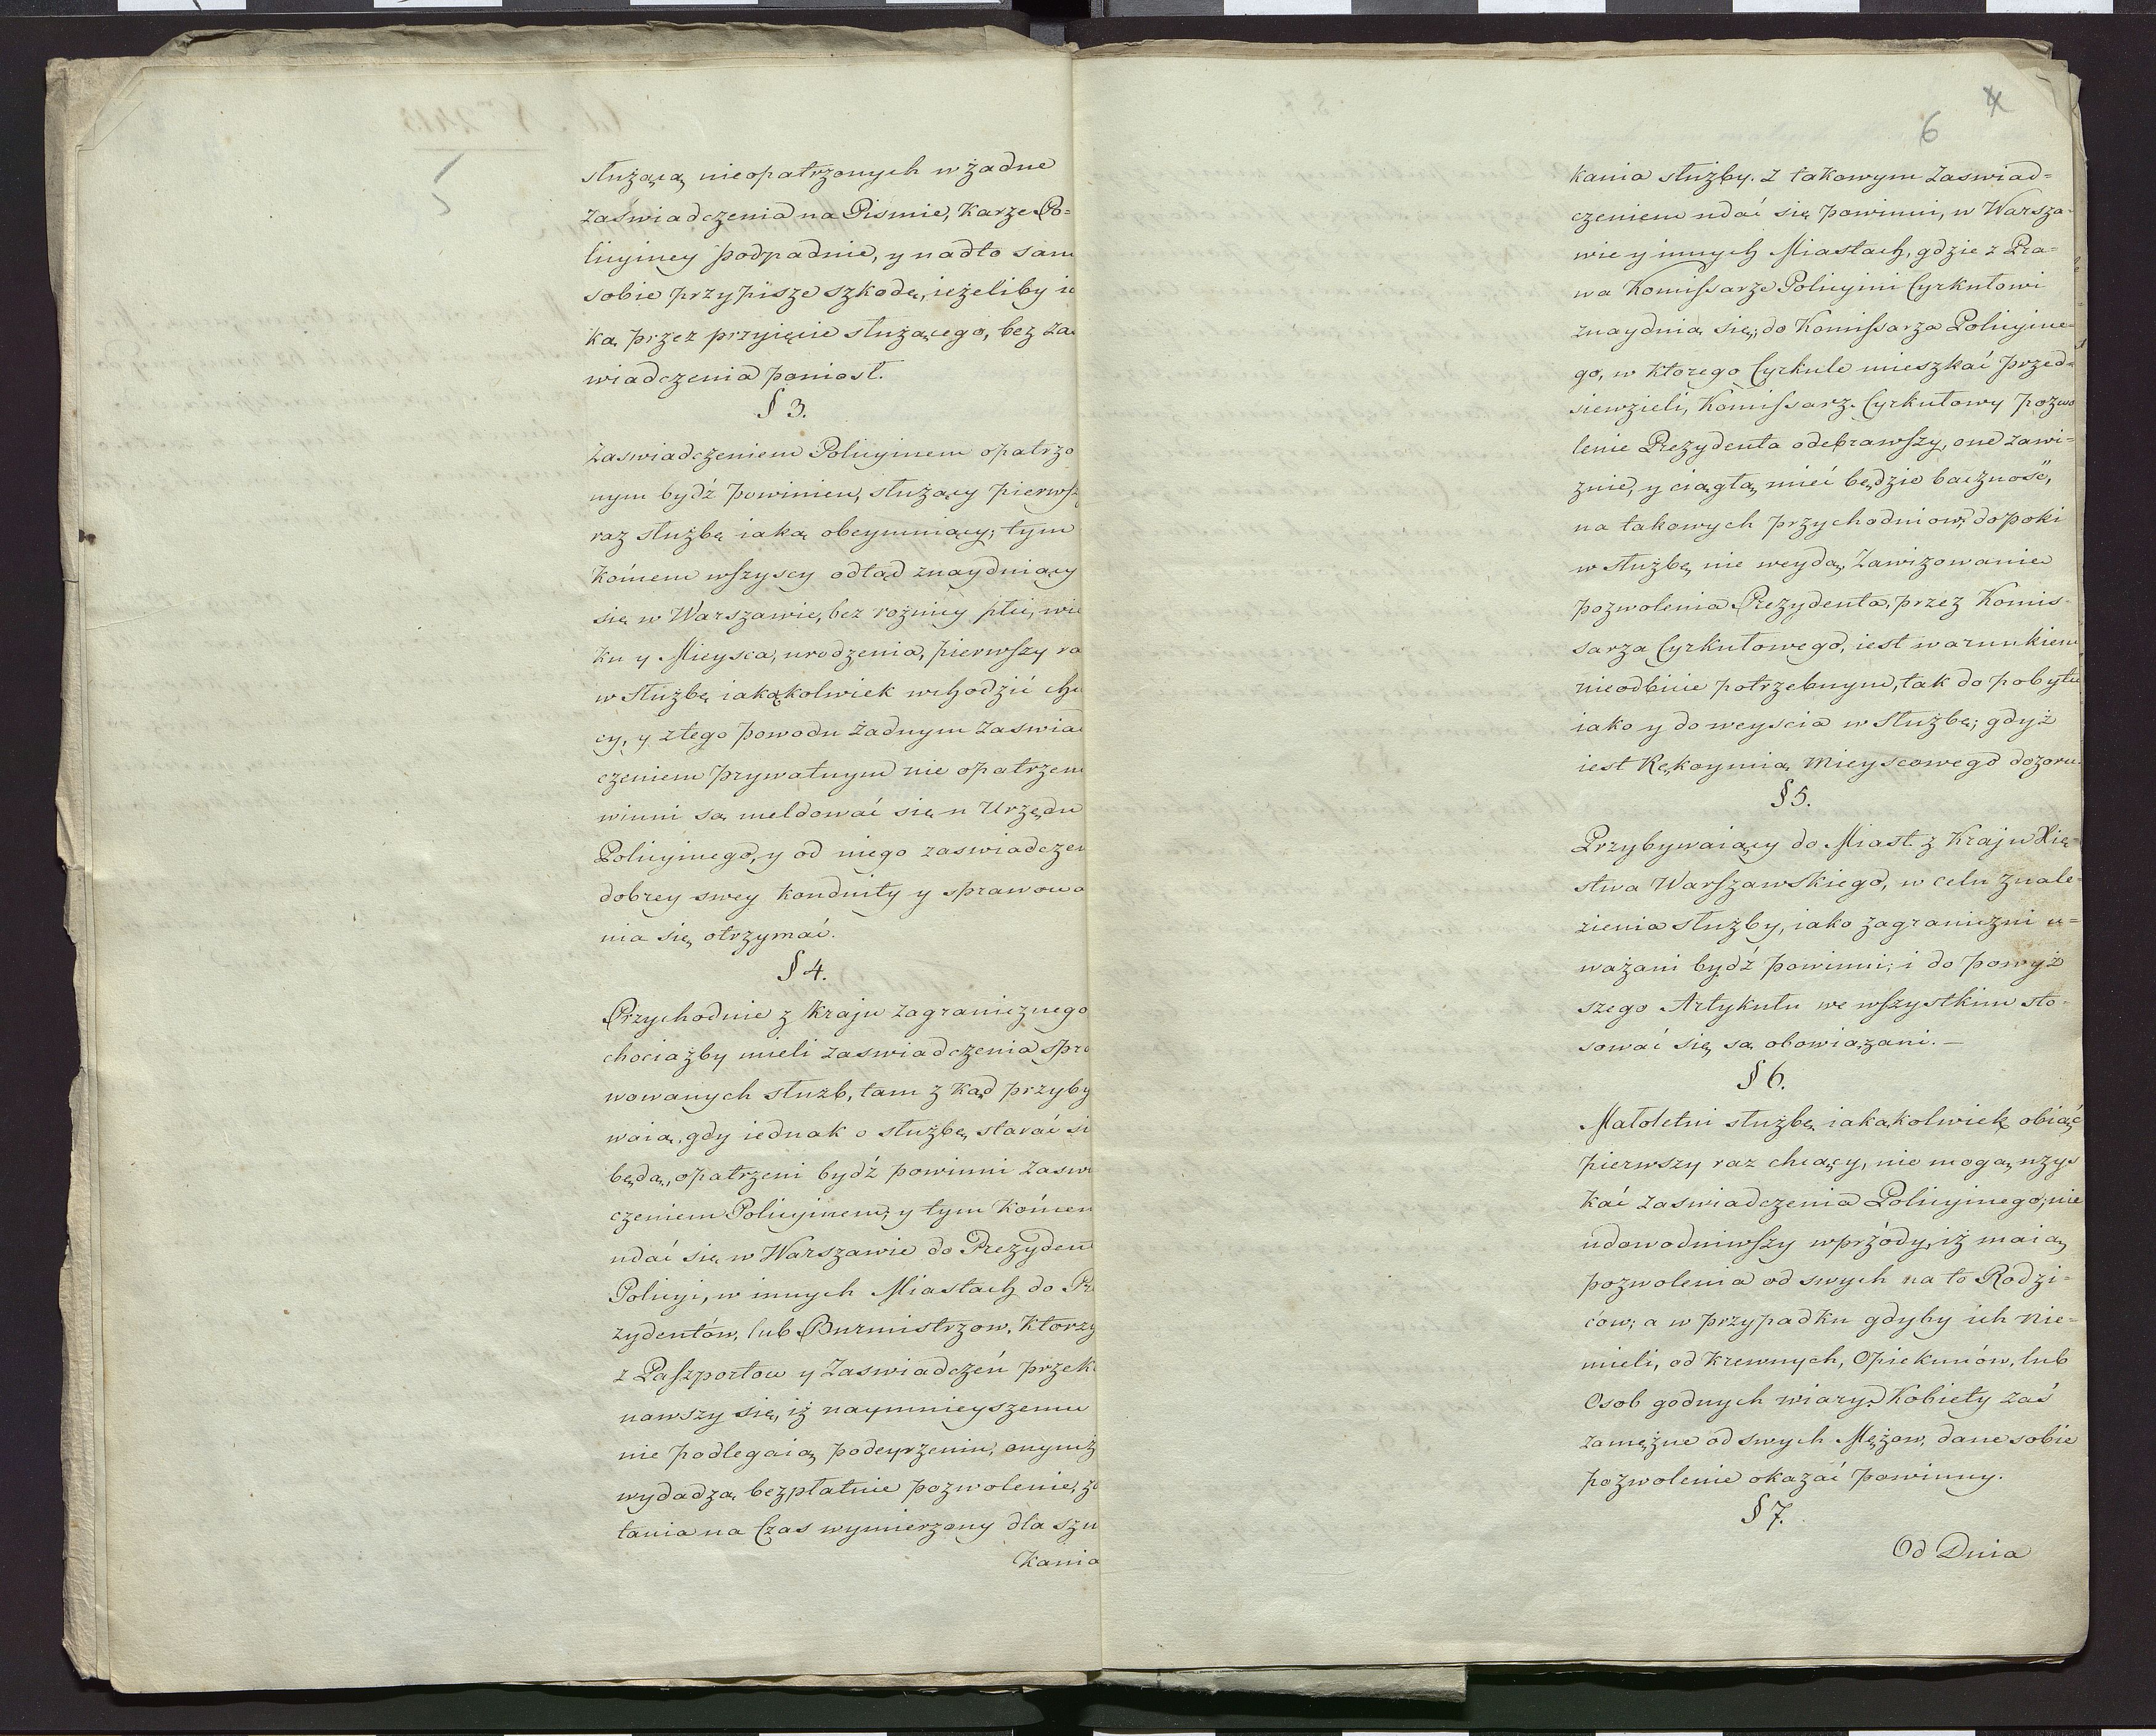 5
służącą nieopatrzonych w żadne
zaświadczenia na Pismie, karze Po=
licyiney podpadnie, y nadto sam
sobie przypisze szkodę, ieżeliby ia
ką przez przyięcie służącego, bez za
wiadczenia poniosł.
§ 3.
Zaswiadczeniem Policyinem opatrzo
nym bydź powinien, służący pierwsz
raz służbę iaką obeymuiący; tym
końcem wszyscy odtąd znayduiący
się w Warszawie, bez rożnicy płci, wie
ku y Mieysca, urodzenia, pierwszy ra
w Służbę iakąkolwiek wchodzić chc
cy, y z tego powodu żadnym Zaswiad
czeniem prywatnym nie opatrzeni
winni są meldować się u Urzędu
Policyinego, y od niego zaswiadczen
dobrey swey konduity y sprawowa
nia się otrzymać.
§ 4.
Przychodnie z Kraju zagranicznego
chociażby mieli zaswiadczenia spra
wowanych służb, tam z kąd przyby
waią, gdy iednak o służbę starać si
będą, opatrzeni bydź powinni Zaswi
czeniem Policyinem; y tym końcem
udać się w Warszawie do Prezydent
Policyi, w innych Miastach do Pre
zydentów, lub Burmistrzow, ktorzy
z Paszportow y Zaswiadczeń przeko
nawszy się, iż naymnieyszemu
nie podlegaią podeyrzeniu, onymż
wydadzą bezpłatnie pozwolenie, zo
tania na Czas wymierzony dla szu
kania
4
6
kania służby. Z takowym Zaswiad=
czeniem udać się powinni, w Warsza-
wie y innych Miastach, gdzie z Pra=
wa Komissarze Policyini Cyrkułowi
znayduią się; do Komissarza Policyine=
go, w ktorego Cyrkule mieszkać przed=
siewzieli, Komissarz Cyrkułowy pozwo
lenie Prezydenta odebrawszy, one zawi=
zuie, y ciągłą mieć będzie baczność,
na takowych przychodniow, dopoki
w służbę nie weydą, Zawizowanie
pozwolenia Prezydenta, przez Komis-
sarza Cyrkułowego, iest warunkiem
nieodbicie potrzebnym, tak do pobytu
iako y do weyscia w Służbę; gdyż
iest Rękoymią Mieyscowego dozoru.
§ 5.
Przybywaiący do Miast z Kraju Xię=
stwa Warszawskiego, w celu znale=
zienia służby, iako zagraniczni u=
ważani bydź powinni; i do powyż
szego Artykułu we wszystkim sto-
sować się są obowiązani.—
§ 6.
Małoletni służbę iakąkolwiek obiąć
pierwszy raz chcący, nie mogą uzys
kać zaswiadczenia Policyinego; nie
udowodniwszy wprzódy, iż maią
pozwolenia od swych na to Rodzi=
ców; a w przypadku gdyby ich nie=
mieli, od krewnych, Opiekunów, lub
Osob godnych wiary. Kobiety zaś
zamężne od swych Mężow, dane sobie
pozwolenie okazać powinny.
§ 7.
Od Dnia